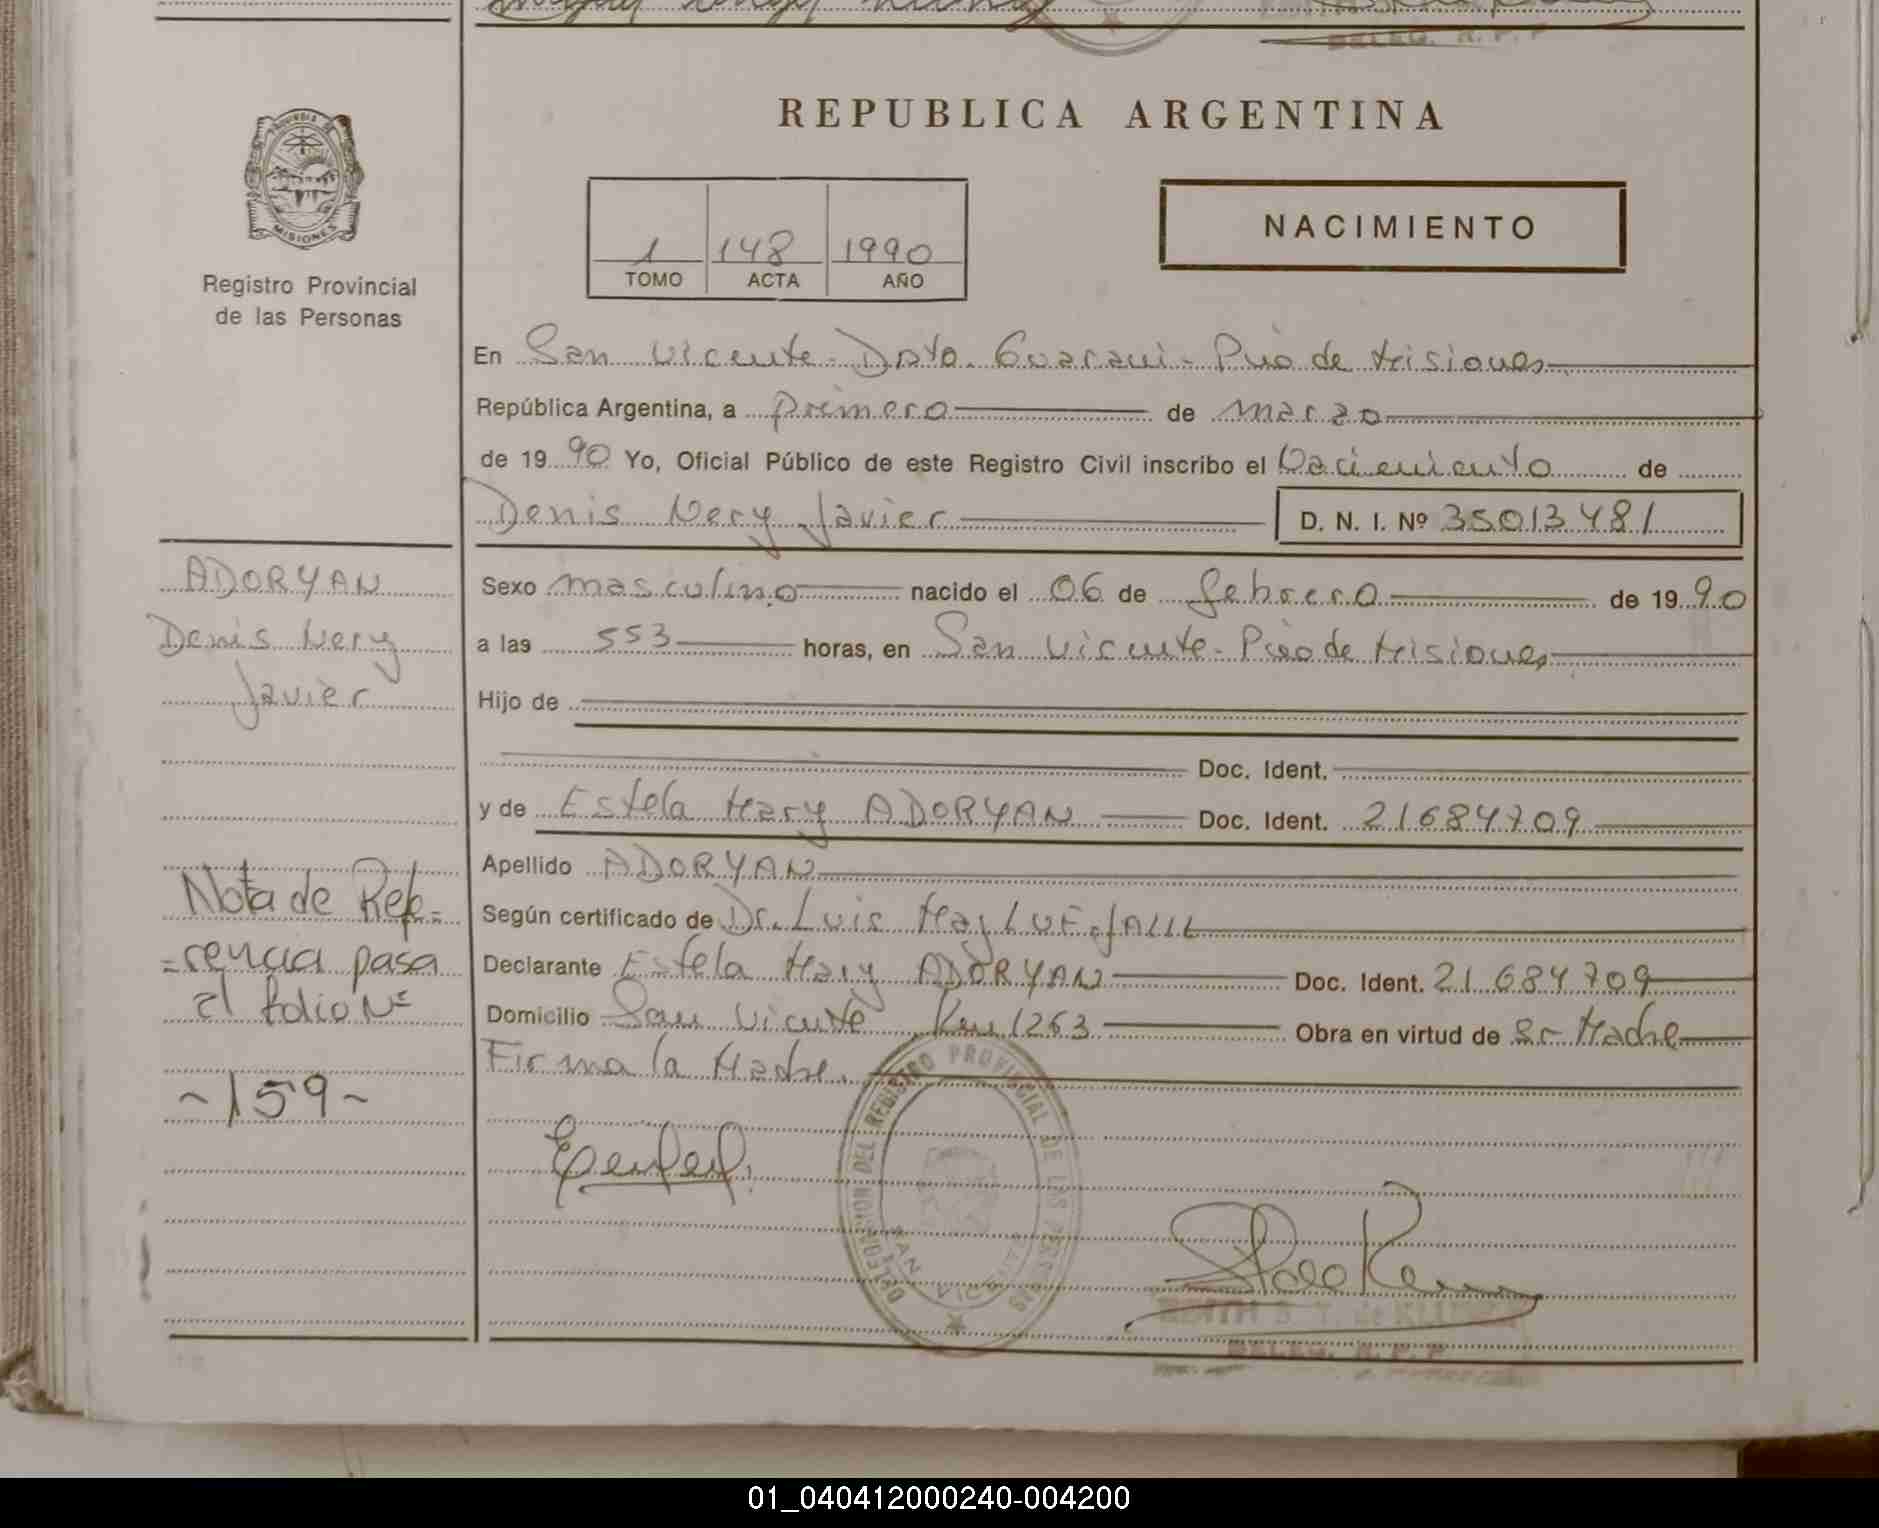 REPUBLICA ARGENTINA
PROVINCIA DE MISIONES
Registro Provincial
de las Personas
1 148 1990
TOMO ACTA AÑO
NACIMIENTO
En San Vicente - Dpto. Guaraní - Pcia de Misiones
República Argentina, a primero de marzo
de 1990 Yo, Oficial Público de este Registro Civil inscribo el Nacimiento de
Denis Nery Javier D. N. I. Nº 35013481
ADORYAN
Denis Nery
Javier
Sexo masculino nacido el 06 de febrero de 1990
a las 553 horas, en San Vicente - Pcia de Misiones
Hijo de
Doc. Ident.
y de Estela Mary ADORYAN Doc. Ident. 21684709
Apellido ADORYAN
Según certificado de Dr. Luis
Declarante Estela Mary ADORYAN Doc. Ident. 21684709
Domicilio San Vicente Km 1263 Obra en virtud de Sr Madre
Firma la Madre.
Nota de Refe=
=rencia pasa
al folio Nº
~159~
DELEGACION DEL REGISTRO PROVINCIAL DE LAS PERSONAS
SAN VICENTE
DELEG. R. P. P
01_040412000240-004200